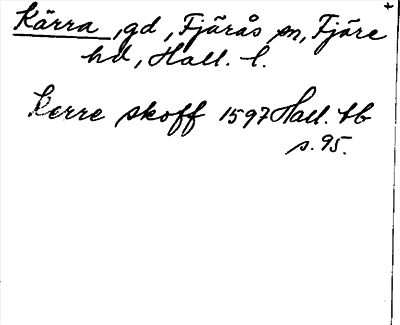 Kärra, gd, Fjärås sn, Fjäre
hd, Hall. l.
Kerre skoff 1597 Hall. tb
s. 95.